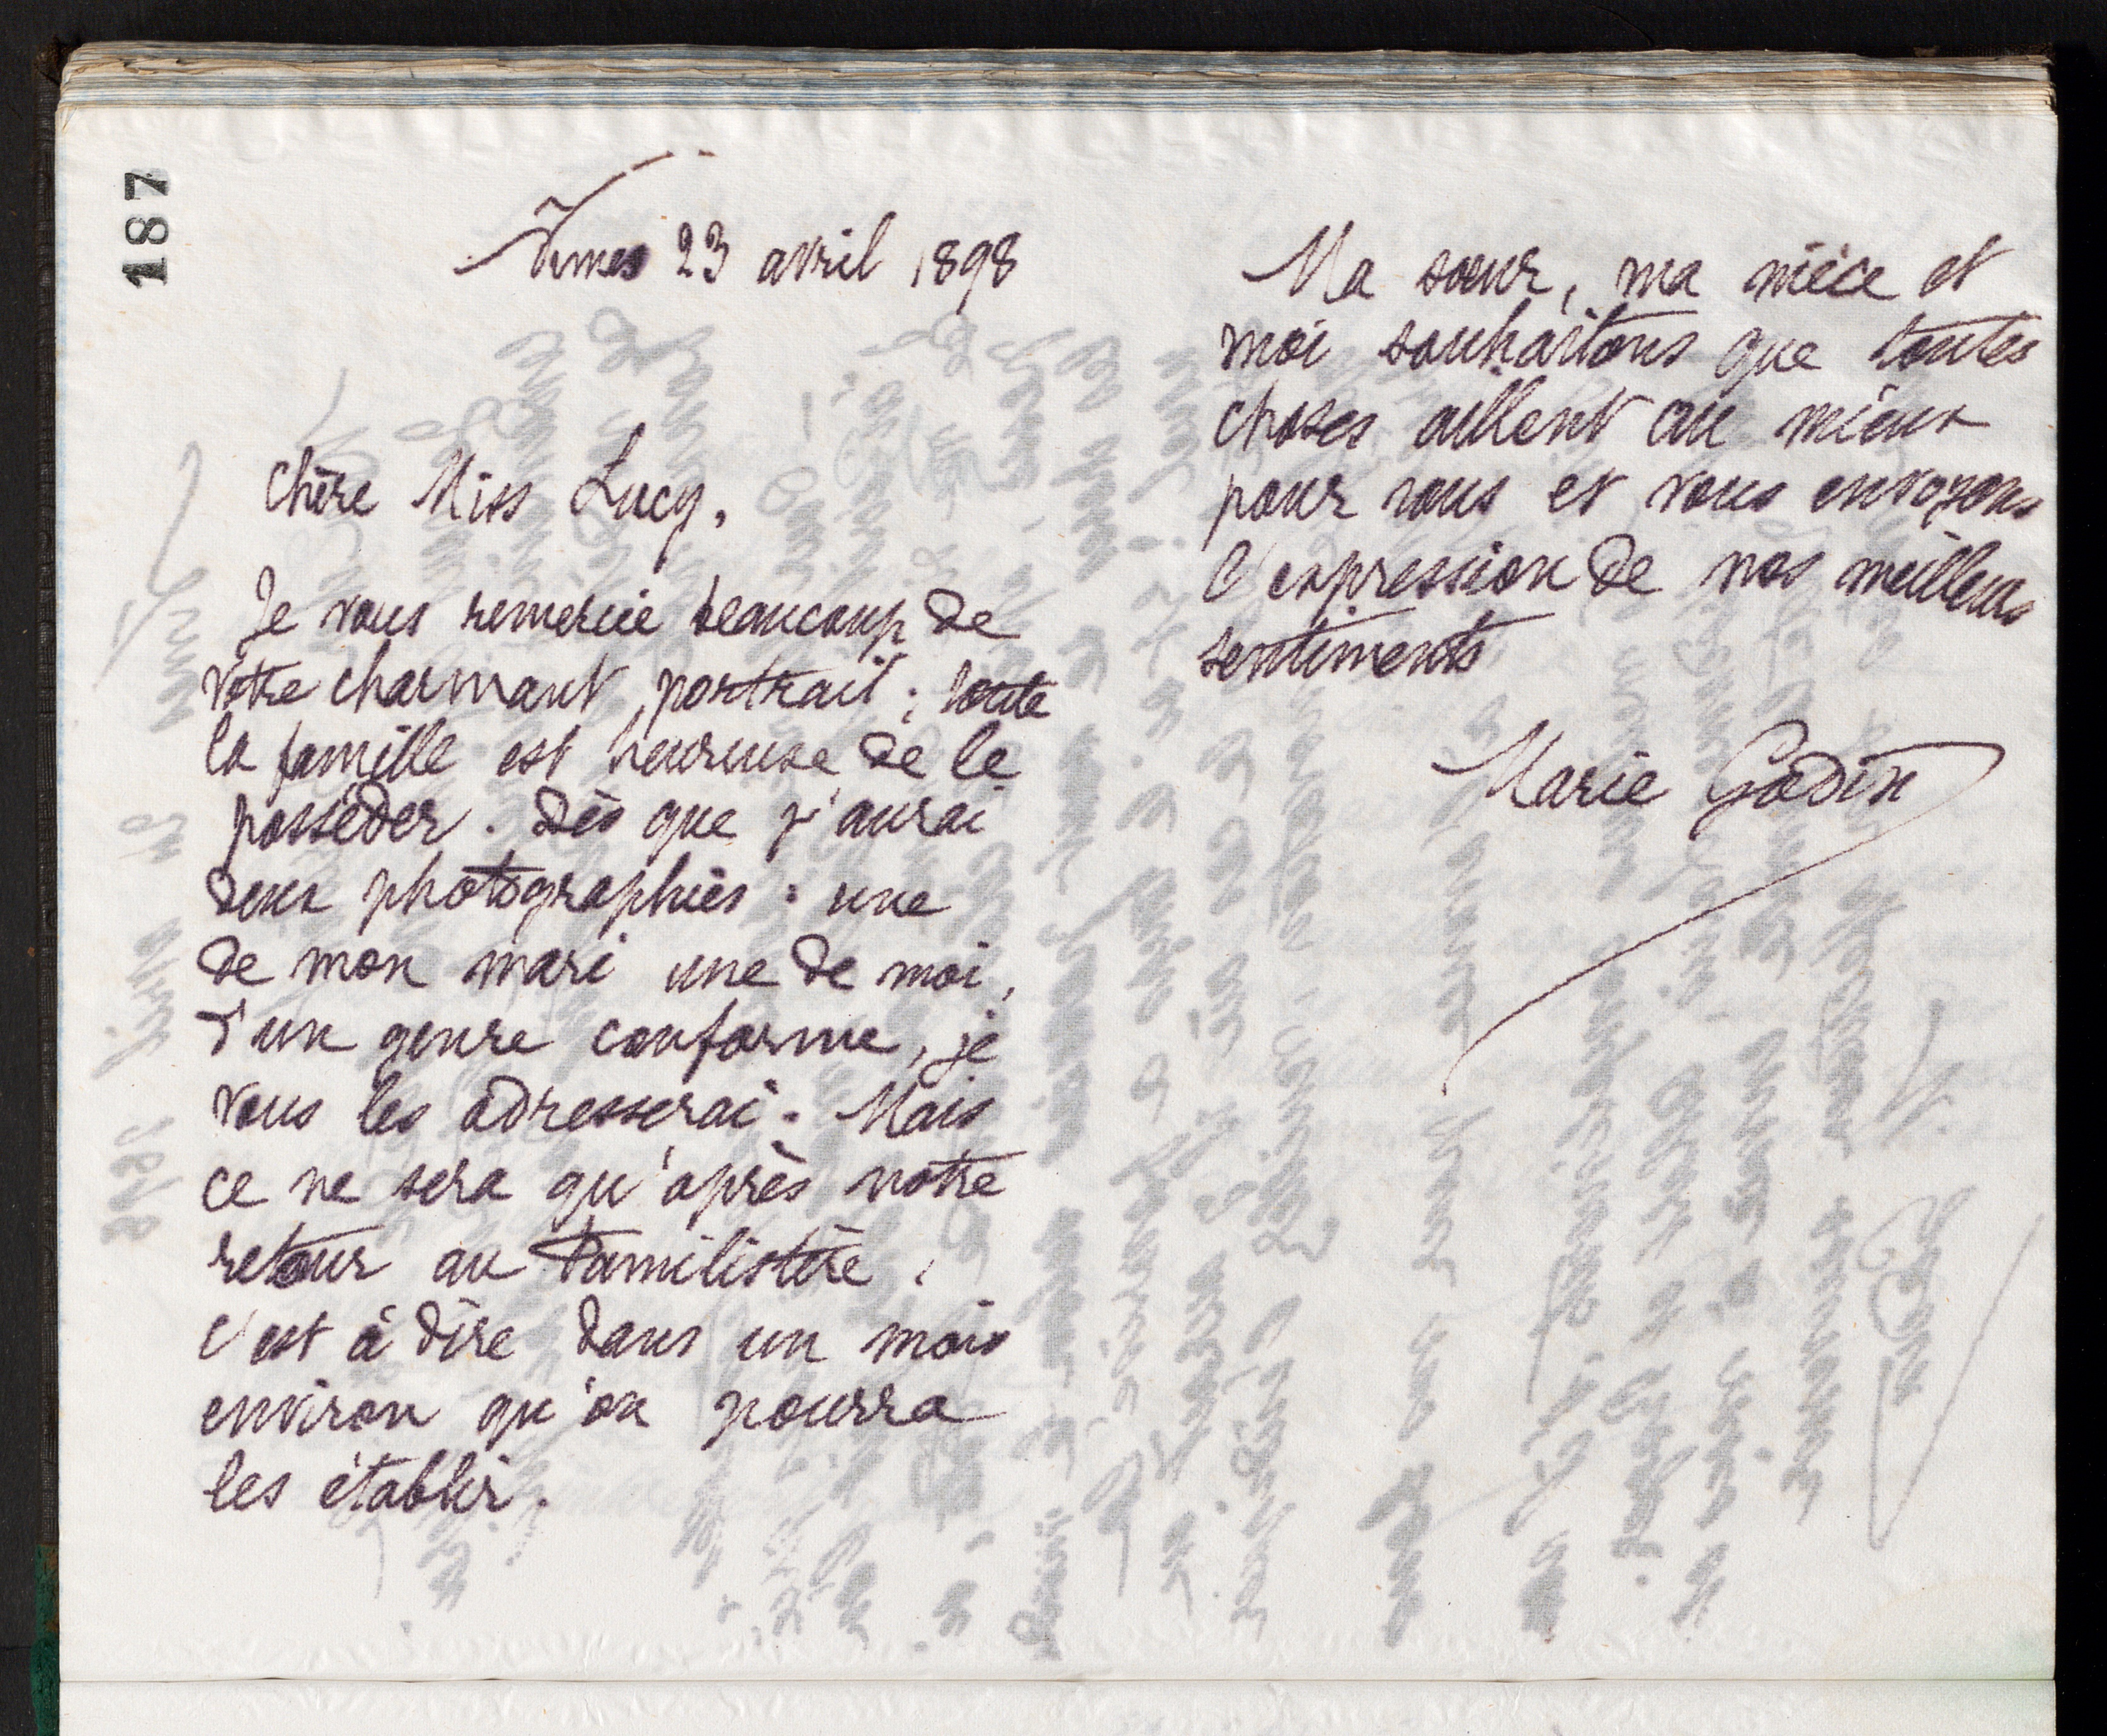 187
Nîmes 23 avril 1898
Chère Miss Lucy,
Je vous remercie beaucoup de
votre charmant portrait ; toute
la famille est heureuse de le
posséder. Dès que j'aurai
deux photographies : une
de mon mari une de moi,
d'un genre conforme, je
vous les adresserai. Mais
ce ne sera qu'après notre
retour au Familistère,
c'est à dire dans un mois
environ qu'on pourra
les établir.
Ma sœur, ma nièce et
moi souhaitons que toutes
choses aillent au mieux
pour vous et vous envoyons
l'expression de nos meilleurs
sentiments
Marie Godin